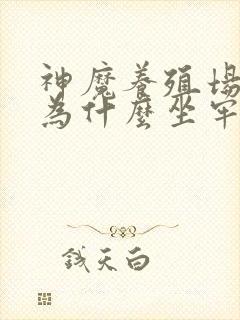 神魔養殖場
為什麼坐牢
錢天白